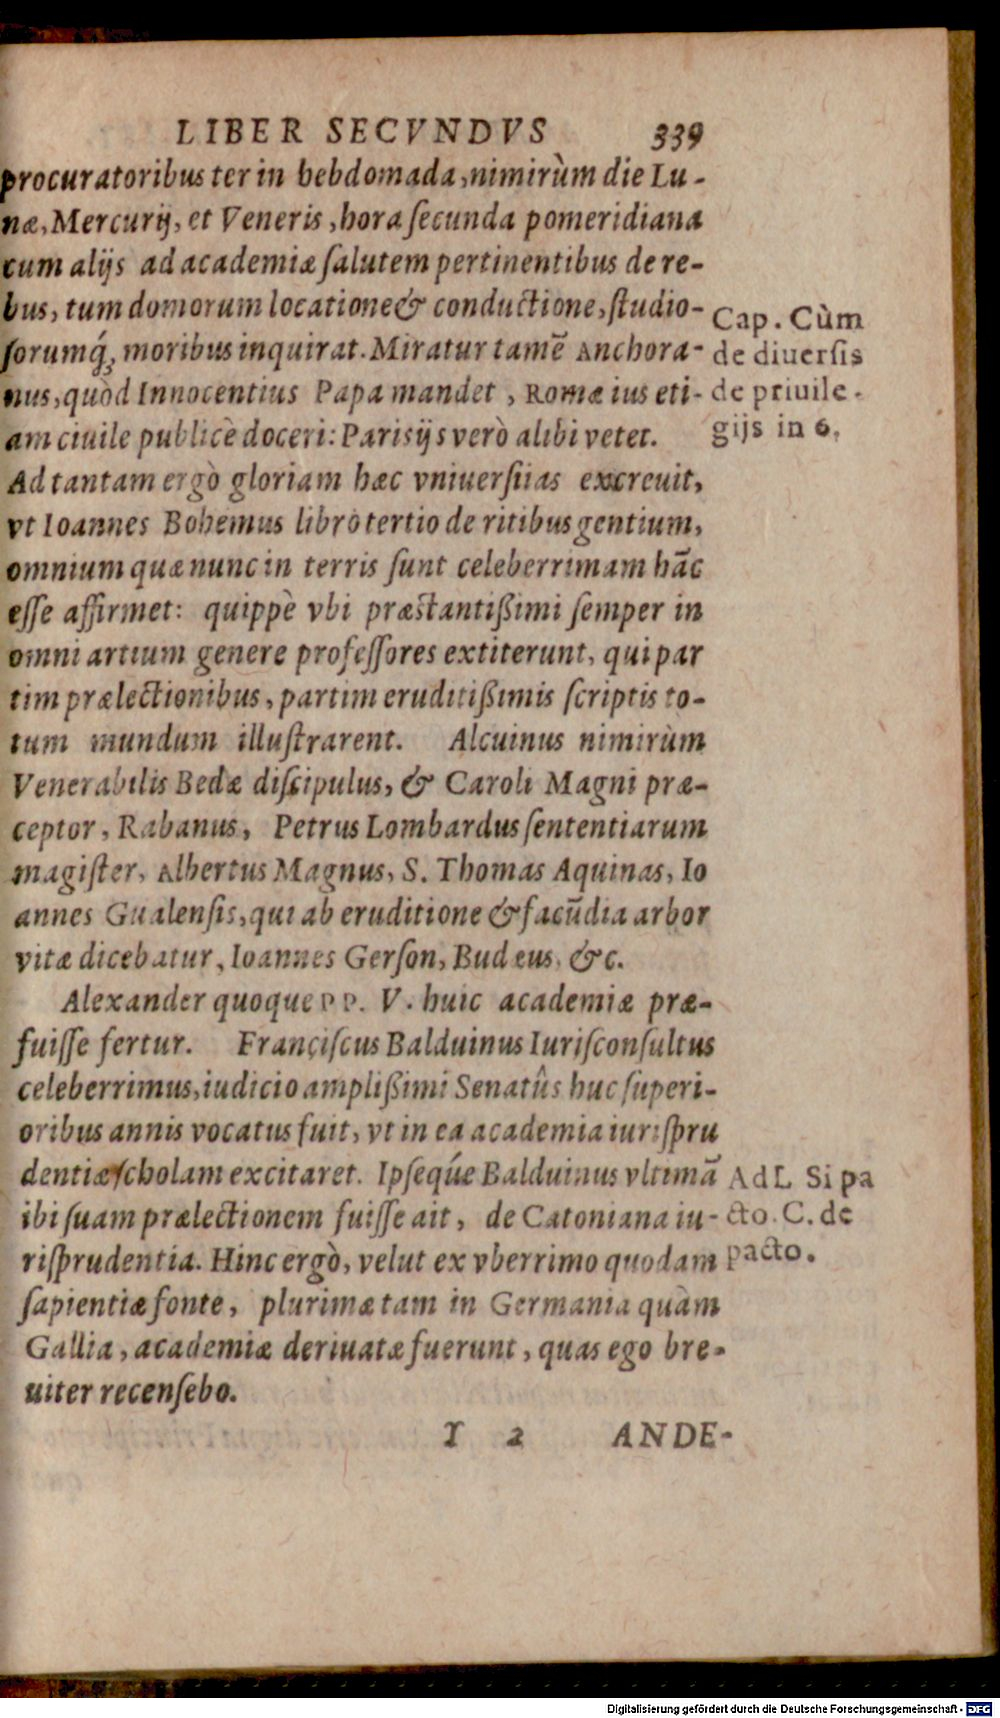 LIBER SECVNDVS 339
procuratoribus ter in hebdomada, nimirùm die Lu-
næ, Mercurij, et Veneris, hora ſecunda pomeridiana
cum alijs ad academiæ ſalutem pertinentibus de re-
bus, tum domorum locatione & conductione, ſtudio-
ſorumq́;, moribus inquirat. Miratur tamē Anchora-
nus, quòd Innocentius Papa mandet, Romæ ius eti-
am ciuile publicè doceri: Parisijs verò alibi vetet.
Cap. Cùm
de diuerſis
de priuile-
gijs in 6.
Ad tantam ergò gloriam hæc vniuerſitas excreuit,
vt Ioannes Bohemus libro tertio de ritibus gentium,
omnium quæ nunc in terris ſunt celeberrimam hāc
eſſe affirmet: quippè vbi præſtantißimi ſemper in
omni artium genere profeſſores extiterunt, qui par
tim prælectionibus, partim eruditißimis ſcriptis to-
tum mundum illuſtrarent. Alcuinus nimirùm
Venerabilis Bedæ diſcipulus, & Caroli Magni præ-
ceptor, Rabanus, Petrus Lombardus ſententiarum
magiſter, Albertus Magnus, S. Thomas Aquinas, Io
annes Gualenſis, qui ab eruditione & facūdia arbor
vitæ dicebatur, Ioannes Gerſon, Budæus, &c.
Alexander quoque P P. V. huic academiæ præ-
fuiſſe fertur. Franciſcus Balduinus Iuriſconſultus
celeberrimus, iudicio amplißimi Senatûs huc ſuperi-
oribus annis vocatus fuit, vt in ea academia iuriſpru
dentiæ ſcholam excitaret. Ipſeq́ue Balduinus vltimā
ibi ſuam prælectionem fuiſſe ait, de Catoniana iu-
riſprudentia. Hinc ergò, velut ex vberrimo quodam
ſapientiæ fonte, plurimæ tam in Germania quàm
Gallia, academiæ deriuatæ fuerunt, quas ego bre-
uiter recenſebo.
Ad L. Si pa
cto. C. de
pacto.
Y 2 ANDE-
Digitalisierung gefördert durch die Deutsche Forschungsgemeinschaft - DFG